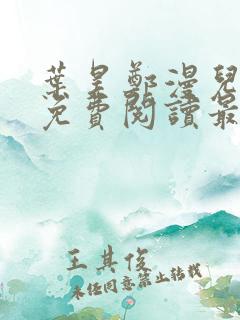 葉星鄭漫兒
免費閱讀最
王其俊
未经同意禁止转载